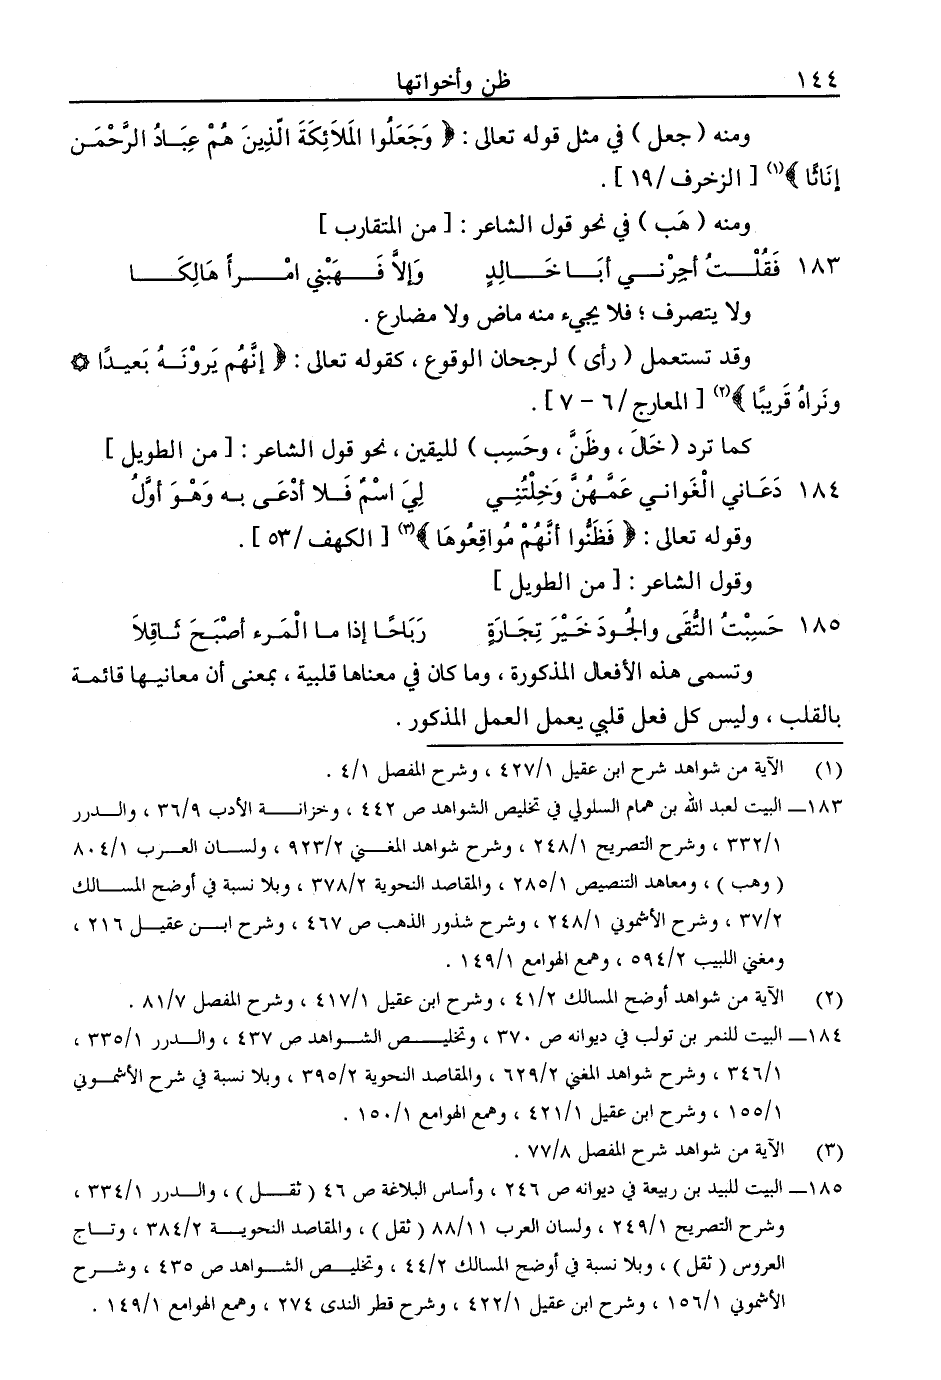 ١٤٤ ظن وأخواتها
ومنه ( جعل ) في مثل قوله تعالى : ﴿ وَجَعَلُوا المَلاَئِكَةَ الَّذِينَ هُمْ عِبَادُ الرَّحْمَن
إنَاثًا ﴾(١) [ الزخرف/١٩ ] .
ومنه ( هَب ) في نحو قول الشاعر : [ من المتقارب ]
١٨٣ فَقُلْتُ أجِرْنِي أبَا خَالِدٍ وَإلاَّ فَهَبْنِي امْرأً هَالِكَا
ولا يتصرف ؛ فلا يجيء منه ماض ولا مضارع .
وقد تستعمل ( رأى ) لرجحان الوقوع ، كقوله تعالى : ﴿ إنَّهُم يَرونَهُ بَعيدًا ۞
ونَراهُ قَريبًا ﴾(٢) [ المعارج/٦ – ٧ ] .
كما ترد ( خَالَ ، وظَنَّ ، وحَسِب ) لليقين ، نحو قول الشاعر : [ من الطويل ]
١٨٤ دَعَاني الْغَواني عَمَّهُنَّ وَخِلْتُنِي لِيَ اسْمٌ فَلا أدْعَى به وَهْوَ أوَّلُ
وقوله تعالى : ﴿ فَظَنُّوا أنَّهُمْ مُواقِعُوهَا ﴾(٣) [ الكهف/٥٣ ] .
وقول الشاعر : [ من الطويل ]
١٨٥ حَسِبْتُ التُّقَى والجُودَ خَيْرَ تِجَارَةٍ رَبَاحًا إذا ما الْمَرء أصْبَحَ ثَاقِلاَ
وتسمى هذه الأفعال المذكورة ، وما كان في معناها قلبية ، بمعنى أن معانيها قائمة
بالقلب ، وليس كل فعل قلبي يعمل العمل المذكور .
(١) الآية من شواهد شرح ابن عقيل ٤٢٧/١ ، وشرح المفصل ٤/١ .
١٨٣ـ البيت لعبد الله بن همام السلولي في تخليص الشواهد ص ٤٤٢ ، وخزانة الأدب ٣٦/٩ ، والدرر
٣٣٢/١ ، وشرح التصريح ٢٤٨/١ ، وشرح شواهد المغني ٩٢٣/٢ ، ولسان العرب ٨٠٤/١
( وهب ) ، ومعاهد التنصيص ٢٨٥/١ ، والمقاصد النحوية ٣٧٨/٢ ، وبلا نسبة في أوضح المسالك
٣٧/٢ ، وشرح الأشموني ٢٤٨/١ ، وشرح شذور الذهب ص ٤٦٧ ، وشرح ابن عقيل ٢١٦ ،
ومغني اللبيب ٥٩٤/٢ ، وهمع الهوامع ١٤٩/١ .
(٢) الآية من شواهد أوضح المسالك ٤١/٢ ، وشرح ابن عقيل ٤١٧/١ ، وشرح المفصل ٨١/٧ .
١٨٤ـ البيت للنمر بن تولب في ديوانه ص ٣٧٠ ، وتخليص الشواهد ص ٤٣٧ ، والدرر ٣٣٥/١ ،
٣٤٦/١ ، وشرح شواهد المغني ٦٢٩/٢ ، والمقاصد النحوية ٣٩٥/٢ ، وبلا نسبة في شرح الأشموني
١٥٥/١ ، وشرح ابن عقيل ٤٢١/١ ، وهمع الهوامع ١٥٠/١ .
(٣) الآية من شواهد شرح المفصل ٧٧/٨ .
١٨٥ـ البيت للبيد بن ربيعة في ديوانه ص ٢٤٦ ، وأساس البلاغة ص ٤٦ ( ثقل ) ، والدرر ٣٣٤/١ ،
وشرح التصريح ٢٤٩/١ ، ولسان العرب ٨٨/١١ ( ثقل ) ، والمقاصد النحوية ٣٨٤/٢ ، وتاج
العروس ( ثقل ) ، وبلا نسبة في أوضح المسالك ٤٤/٢ ، وتخليص الشواهد ص ٤٣٥ ، وشرح
الأشموني ١٥٦/١ ، وشرح ابن عقيل ٤٢٢/١ ، وشرح قطر الندى ٢٧٤ ، وهمع الهوامع ١٤٩/١ .